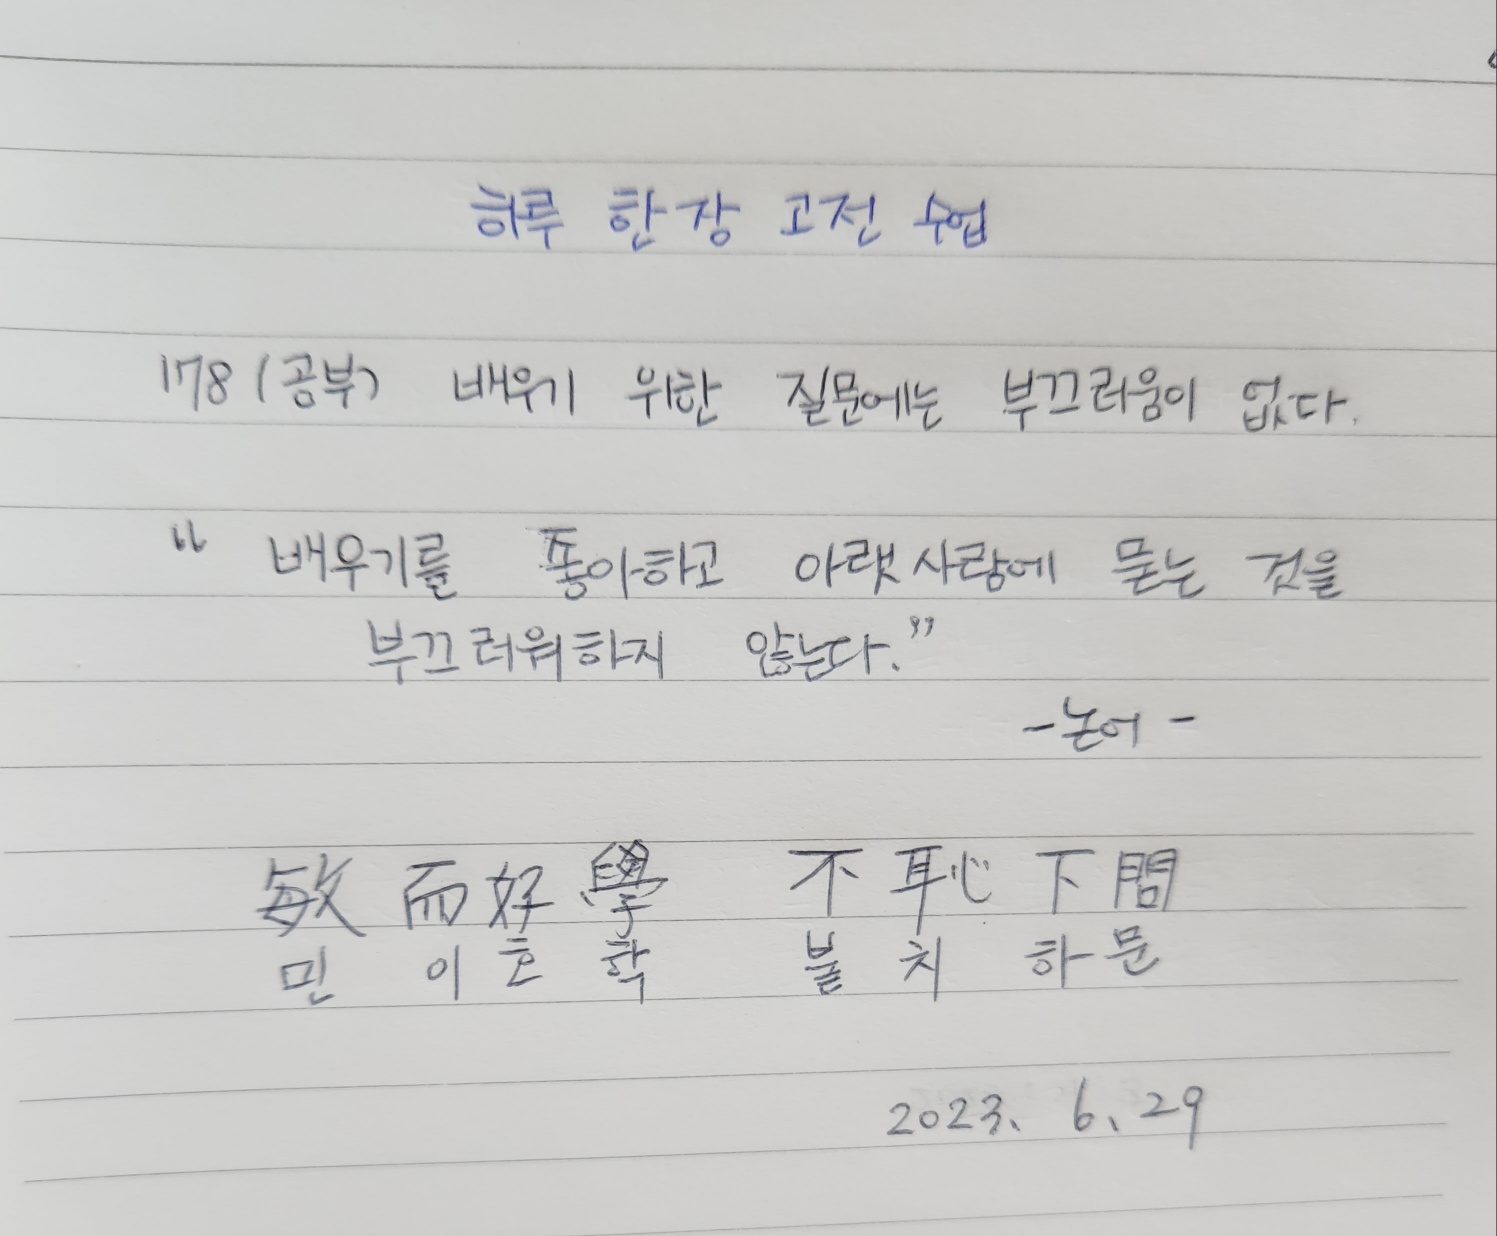 하루 한장 고전 수업
178 (공부) 배우기 위한 질문에는 부끄러움이 없다.
"배우기를 좋아하고 아랫사람에 묻는 것을
부끄러워하지 않는다."
- 논어 -
敏而好學 不恥下問
민 이 호 학 불 치 하 문
2023. 6. 29